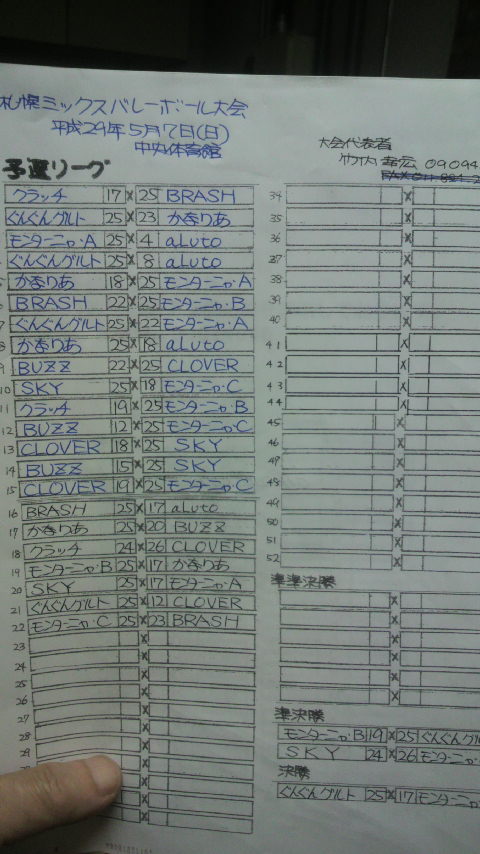 札幌ミックスバレーボール大会
平成29年5月7日(日)
中央体育館
大会代表者
竹内 09094
予選リーグ
クラッチ 17 × 25 BRASH
ぐんぐんグルト 25 × 23 かまりあ
モンターニャ・A 25 × 4 aLuto
ぐんぐんグルト 25 × 8 aLuto
かまりあ 18 × 25 モンターニャ・A
6 BRASH 22 × 25 モンターニャ・B
7 ぐんぐんグルト 25 × 22 モンターニャ・A
8 かまりあ 25 × 18 aLuto
9 BUZZ 22 × 25 CLOVER
10 SKY 25 × 18 モンターニャ・C
11 クラッチ 19 × 25 モンターニャ・B
12 BUZZ 12 × 25 モンターニャ・C
13 CLOVER 18 × 25 SKY
14 BUZZ 15 × 25 SKY
15 CLOVER 19 × 25 モンターニャ・C
16 BRASH 25 × 17 aLuto
17 かまりあ 25 × 20 BUZZ
18 クラッチ 24 × 26 CLOVER
19 モンターニャ・B 25 × 17 かまりあ
20 SKY 25 × 17 モンターニャ・A
21 ぐんぐんグルト 25 × 12 CLOVER
22 モンターニャ・C 25 × 23 BRASH
23 ×
24 ×
25 ×
26 ×
27 ×
28 ×
29 ×
34 ×
35 ×
36 ×
37 ×
38 ×
39 ×
40 ×
41 ×
42 ×
43 ×
44 ×
45 ×
46 ×
47 ×
48 ×
49 ×
50 ×
51 ×
52 ×
準準決勝
準決勝
モンターニャ・B 19 × 25 ぐんぐんグル
SKY 24 × 26 モンターニ
決勝
ぐんぐんグルト 25 × 17 モンターニャ